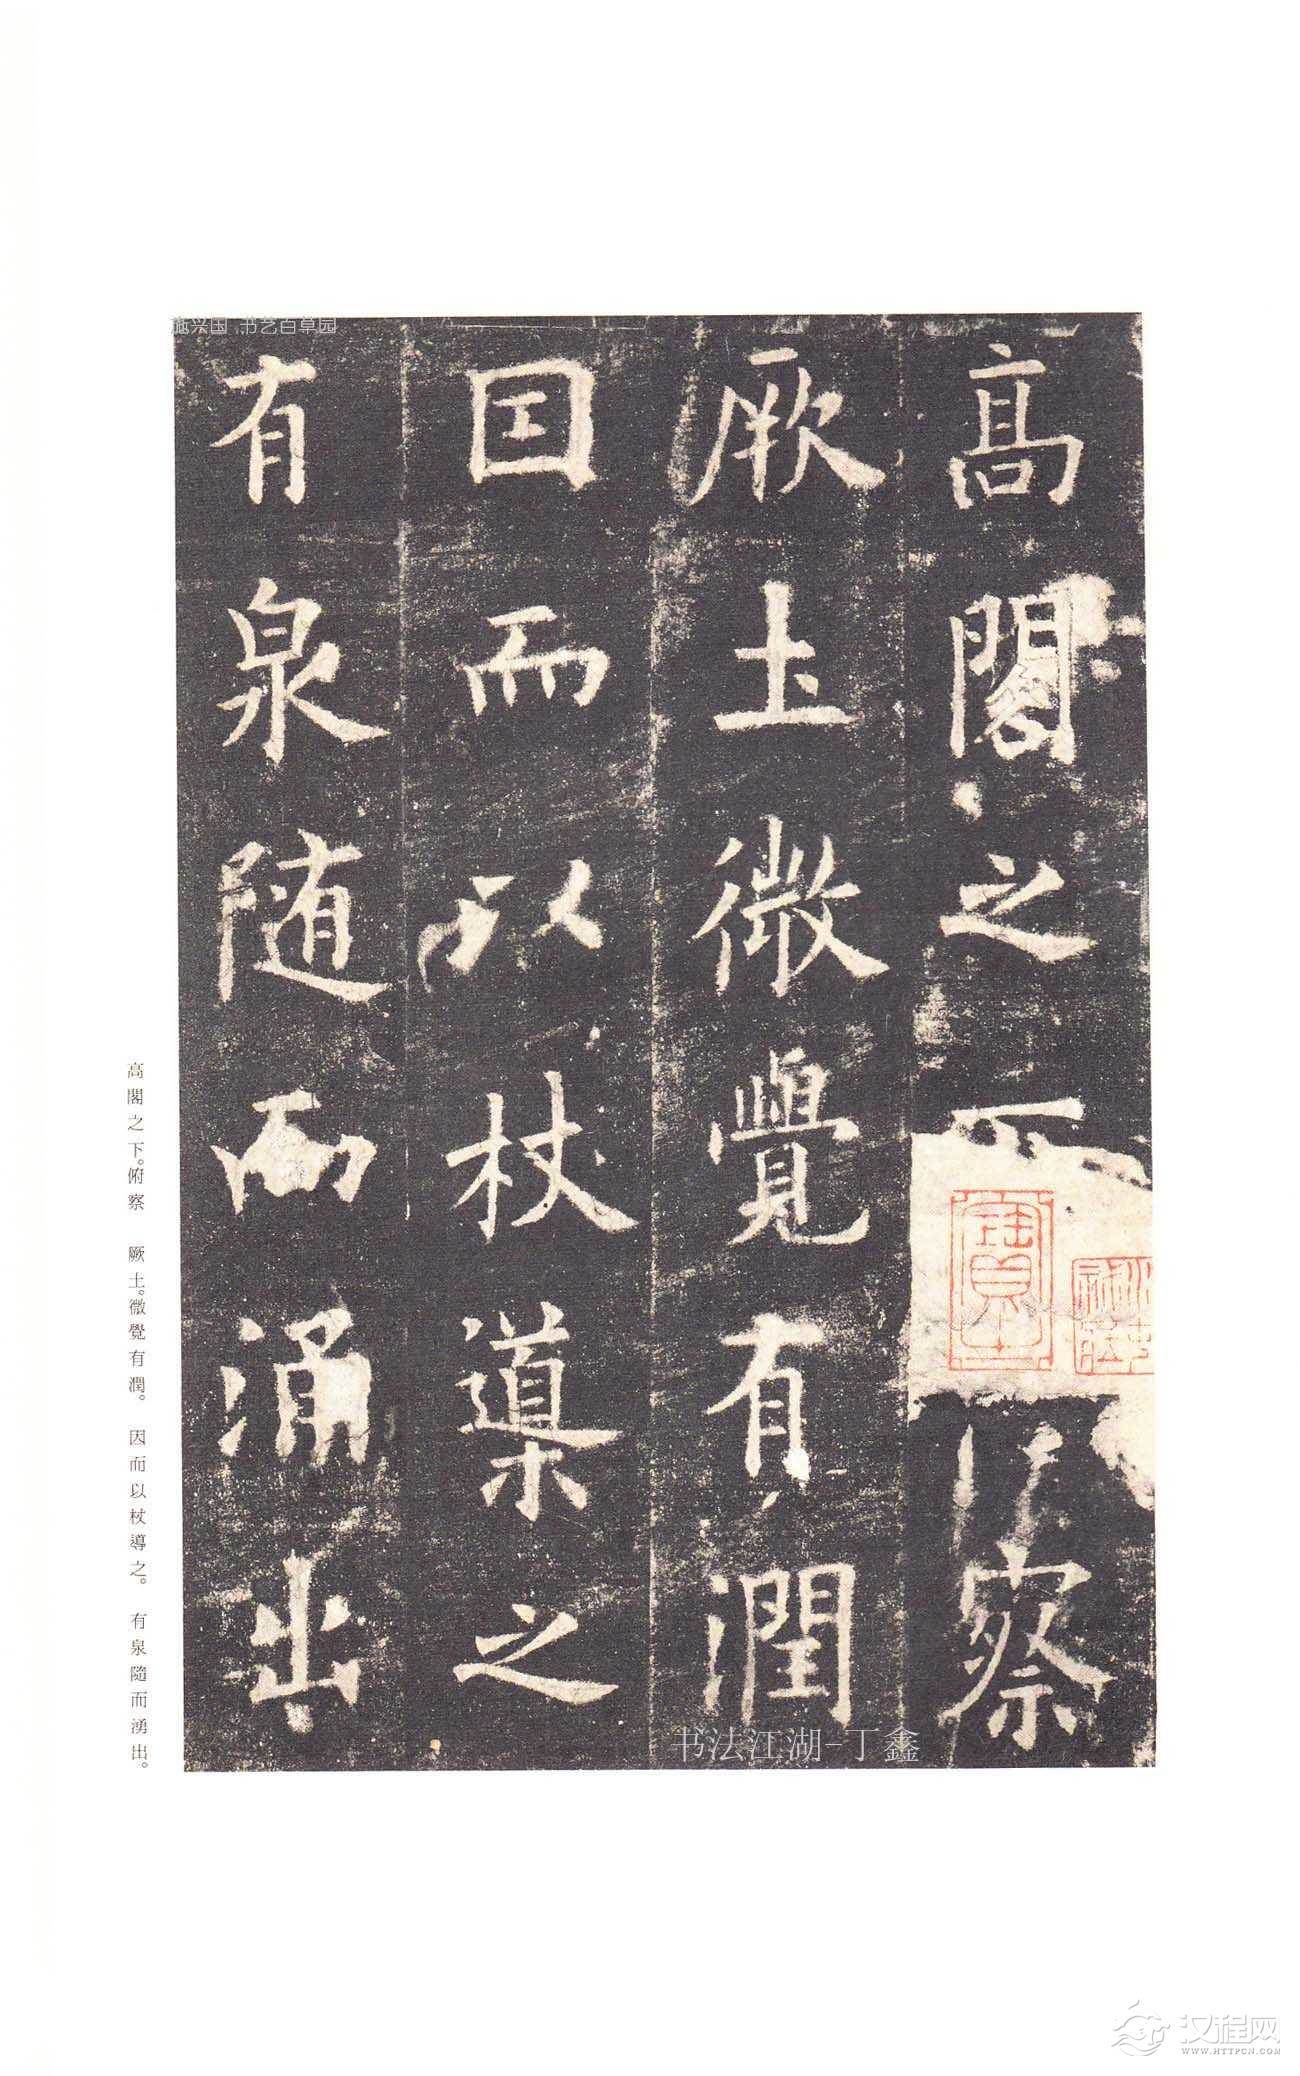 高閣之下俯察
厥土微覺有潤
因而以杖導之
有泉随而涌出
高閣之下。俯察　厥土。微覺有潤。　因而以杖導之。　有泉隨而湧出。
施兴国 书艺百草园
书法江湖-丁鑫
汉程网
WWW.HTTPCN.COM